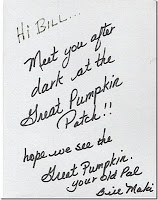 Hi Bill...
Meet you after
dark at the
Great Pumpkin
Patch!!
hope we see the
Great Pumpkin.
your old Pal
Bill Maki